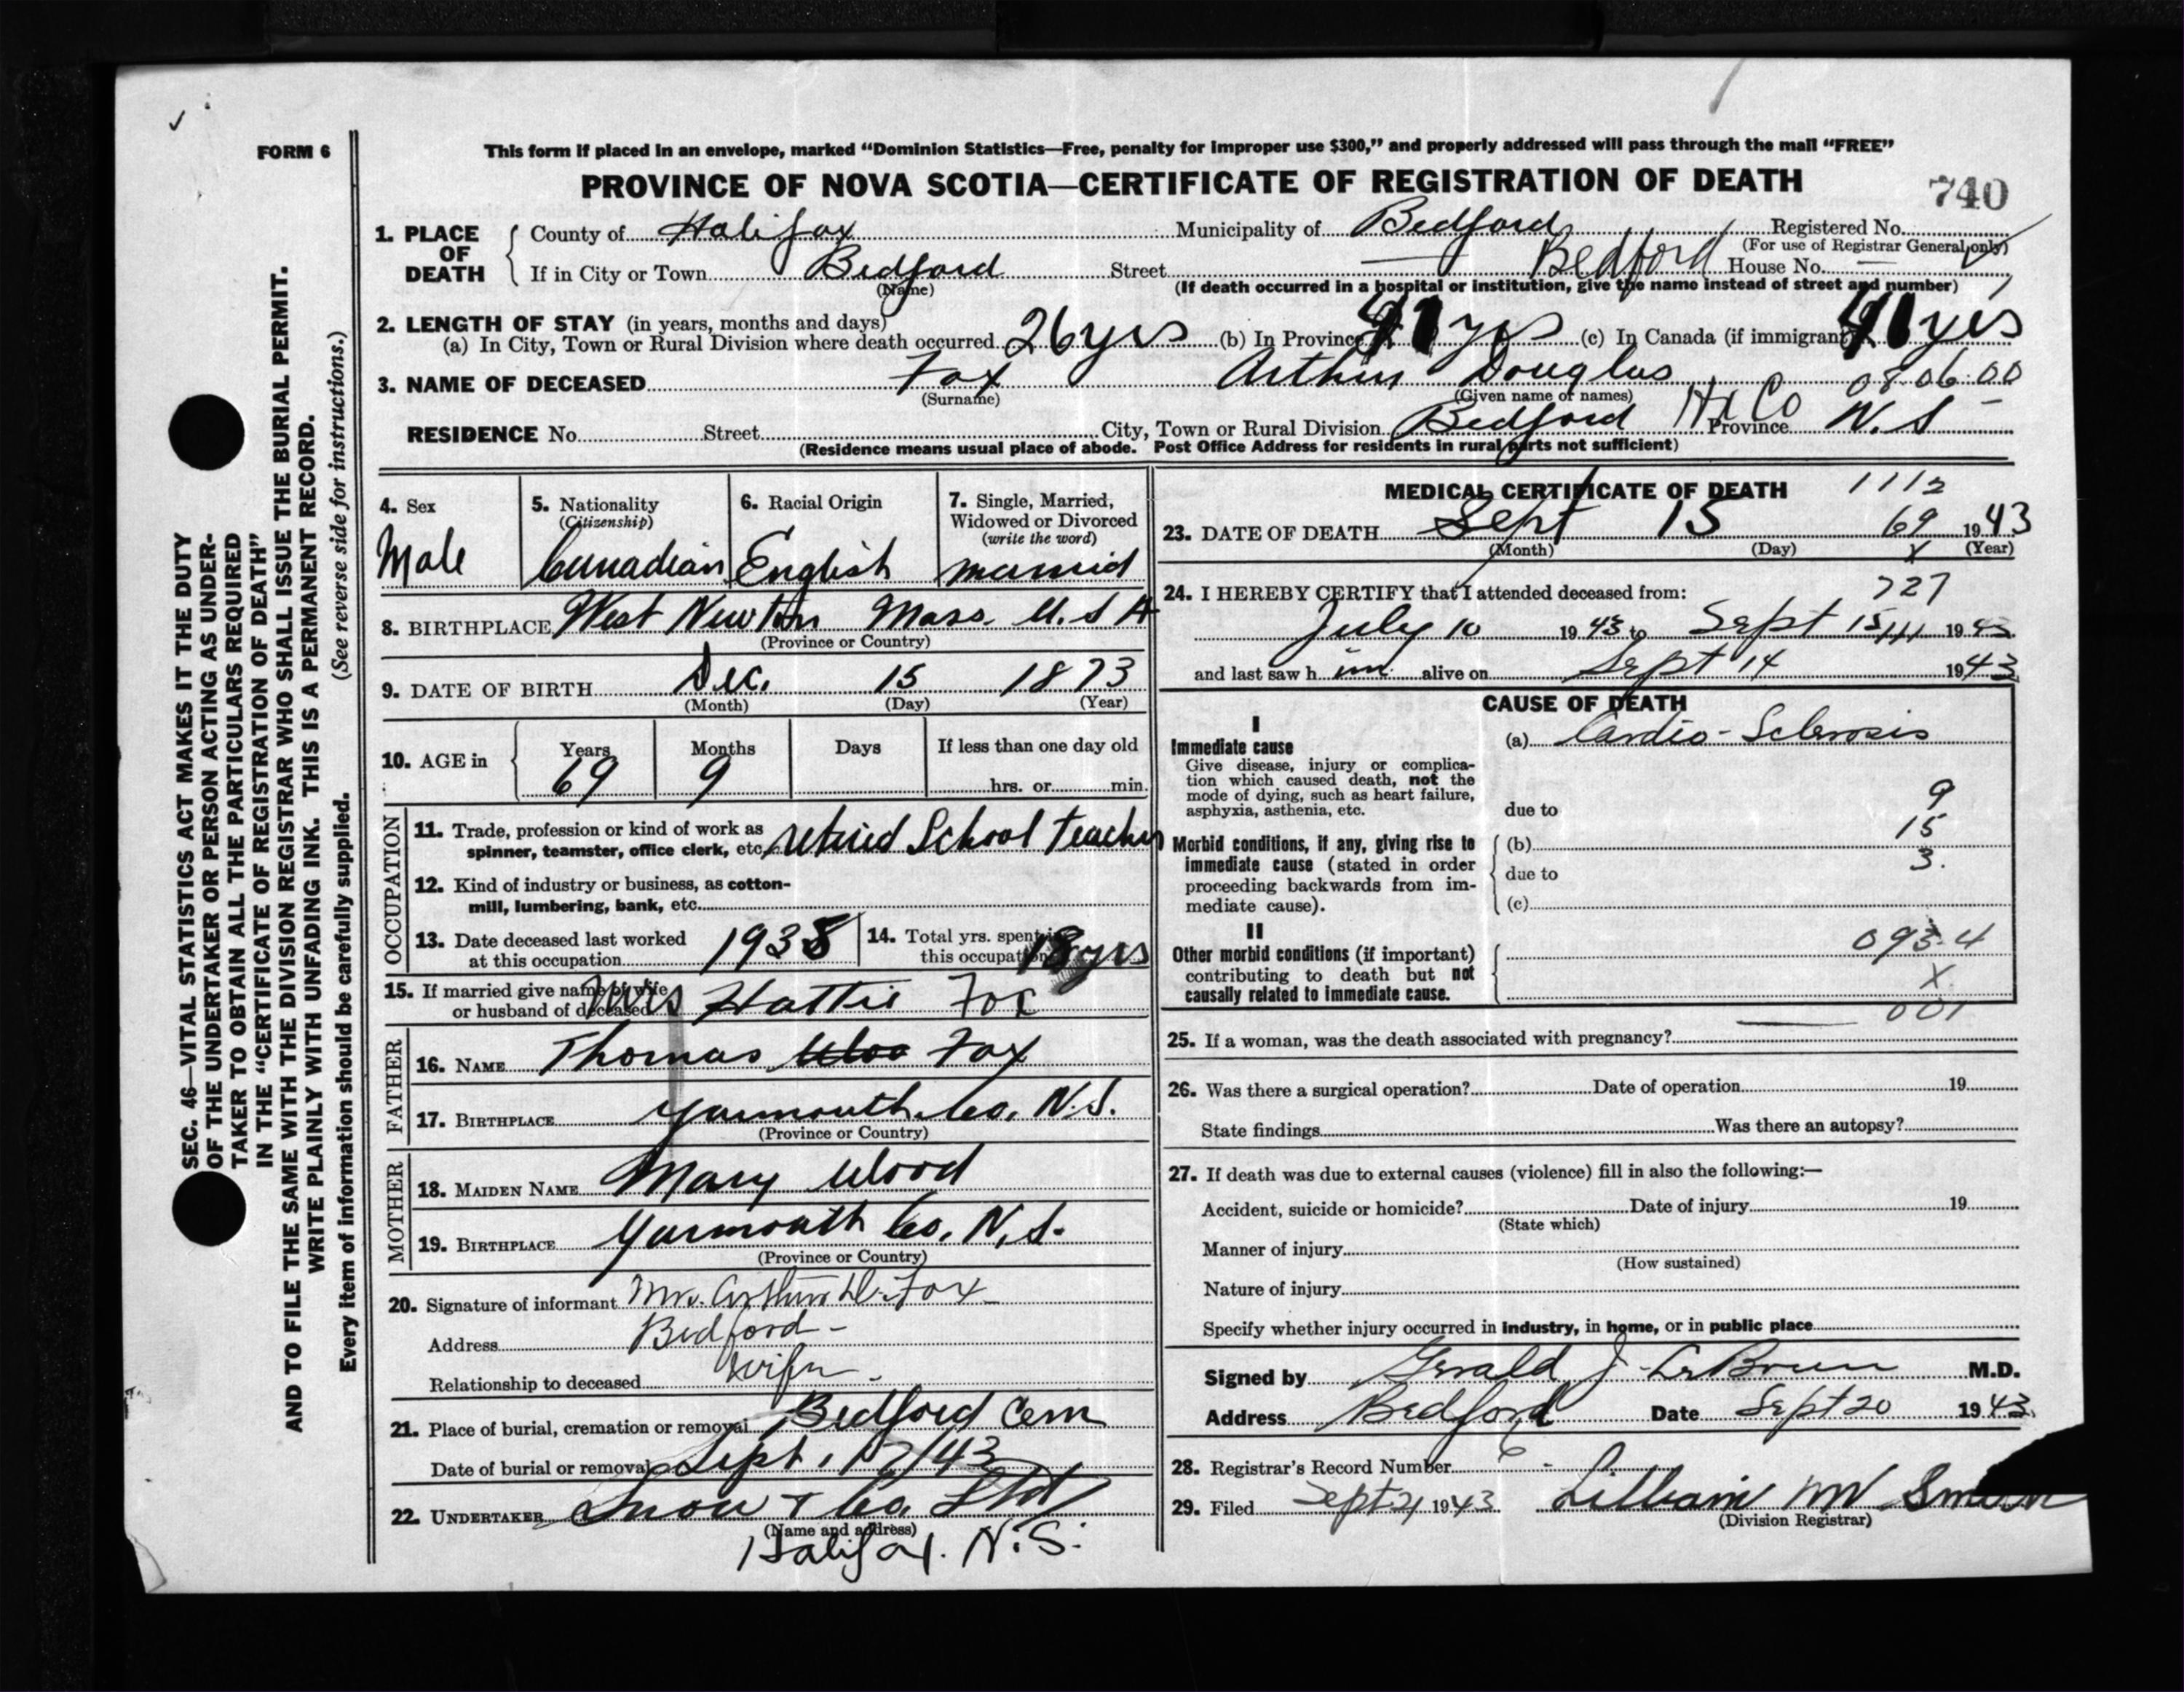 FORM 6
This form if placed in an envelope, marked “Dominion Statistics—Free, penalty for improper use $300,” and properly addressed will pass through the mail “FREE”
PROVINCE OF NOVA SCOTIA—CERTIFICATE OF REGISTRATION OF DEATH
740
1. PLACE OF DEATH
County of Halifax Municipality of Bedford Registered No.
(For use of Registrar General only)
If in City or Town Bedford Street — Bedford House No. —
(Name)
(If death occurred in a hospital or institution, give the name instead of street and number)
2. LENGTH OF STAY (in years, months and days)
(a) In City, Town or Rural Division where death occurred 26 yrs (b) In Province 41 yrs (c) In Canada (if immigrant) 41 yrs
3. NAME OF DECEASED Fox Arthur Douglas 08 06 00
(Surname) (Given name or names)
RESIDENCE No. Street City, Town or Rural Division Bedford Hx Co Province N.S
(Residence means usual place of abode. Post Office Address for residents in rural parts not sufficient)
4. Sex
Male
5. Nationality
(Citizenship)
Canadian
6. Racial Origin
English
7. Single, Married,
Widowed or Divorced
(write the word)
married
8. BIRTHPLACE West Newton Mass. U.S A
(Province or Country)
9. DATE OF BIRTH Dec. 15 1873
(Month) (Day) (Year)
10. AGE in
Years Months Days If less than one day old
69 9
hrs. or min.
OCCUPATION
11. Trade, profession or kind of work as
spinner, teamster, office clerk, etc. retired School teacher
12. Kind of industry or business, as cotton-
mill, lumbering, bank, etc.
13. Date deceased last worked
at this occupation 1938
14. Total yrs. spent in
this occupation 18 yrs
15. If married give name of wife
or husband of deceased Mrs Hattie Fox
FATHER
16. NAME Thomas Fox
17. BIRTHPLACE Yarmouth Co. N.S.
(Province or Country)
MOTHER
18. MAIDEN NAME Mary Wood
19. BIRTHPLACE Yarmouth Co. N.S.
(Province or Country)
20. Signature of informant Mrs. Arthur D. Fox
Address Bedford -
Relationship to deceased wife.
21. Place of burial, cremation or removal Bedford Cem
Date of burial or removal Sept. 17/43
22. UNDERTAKER Snow & Co. Ltd
(Name and address)
Halifax. N.S.
MEDICAL CERTIFICATE OF DEATH
1112
23. DATE OF DEATH Sept 15 69 1943
(Month) (Day) X (Year)
24. I HEREBY CERTIFY that I attended deceased from:
727
July 10 1943 to Sept 15 1943
and last saw him alive on Sept 14 1943
CAUSE OF DEATH
I
Immediate cause
Give disease, injury or complica-
tion which caused death, not the
mode of dying, such as heart failure,
asphyxia, asthenia, etc.
(a) Cardio-Sclerosis
due to
9
15
3.
Morbid conditions, if any, giving rise to
immediate cause (stated in order
proceeding backwards from im-
mediate cause).
(b)
due to
(c)
II
Other morbid conditions (if important)
contributing to death but not
causally related to immediate cause.
093-4
X
001
25. If a woman, was the death associated with pregnancy?
26. Was there a surgical operation? Date of operation 19
State findings Was there an autopsy?
27. If death was due to external causes (violence) fill in also the following:—
Accident, suicide or homicide? Date of injury 19
(State which)
Manner of injury
(How sustained)
Nature of injury
Specify whether injury occurred in industry, in home, or in public place
Signed by Gerald J. LeBrun M.D.
Address Bedford Date Sept 20 1943
28. Registrar's Record Number
29. Filed Sept. 21 1943 Lillian
(Division Registrar)
SEC. 46—VITAL STATISTICS ACT MAKES IT THE DUTY
OF THE UNDERTAKER OR PERSON ACTING AS UNDER-
TAKER TO OBTAIN ALL THE PARTICULARS REQUIRED
IN THE “CERTIFICATE OF REGISTRATION OF DEATH”
AND TO FILE THE SAME WITH THE DIVISION REGISTRAR WHO SHALL ISSUE THE BURIAL PERMIT.
WRITE PLAINLY WITH UNFADING INK. THIS IS A PERMANENT RECORD.
Every item of information should be carefully supplied. (See reverse side for instructions.)